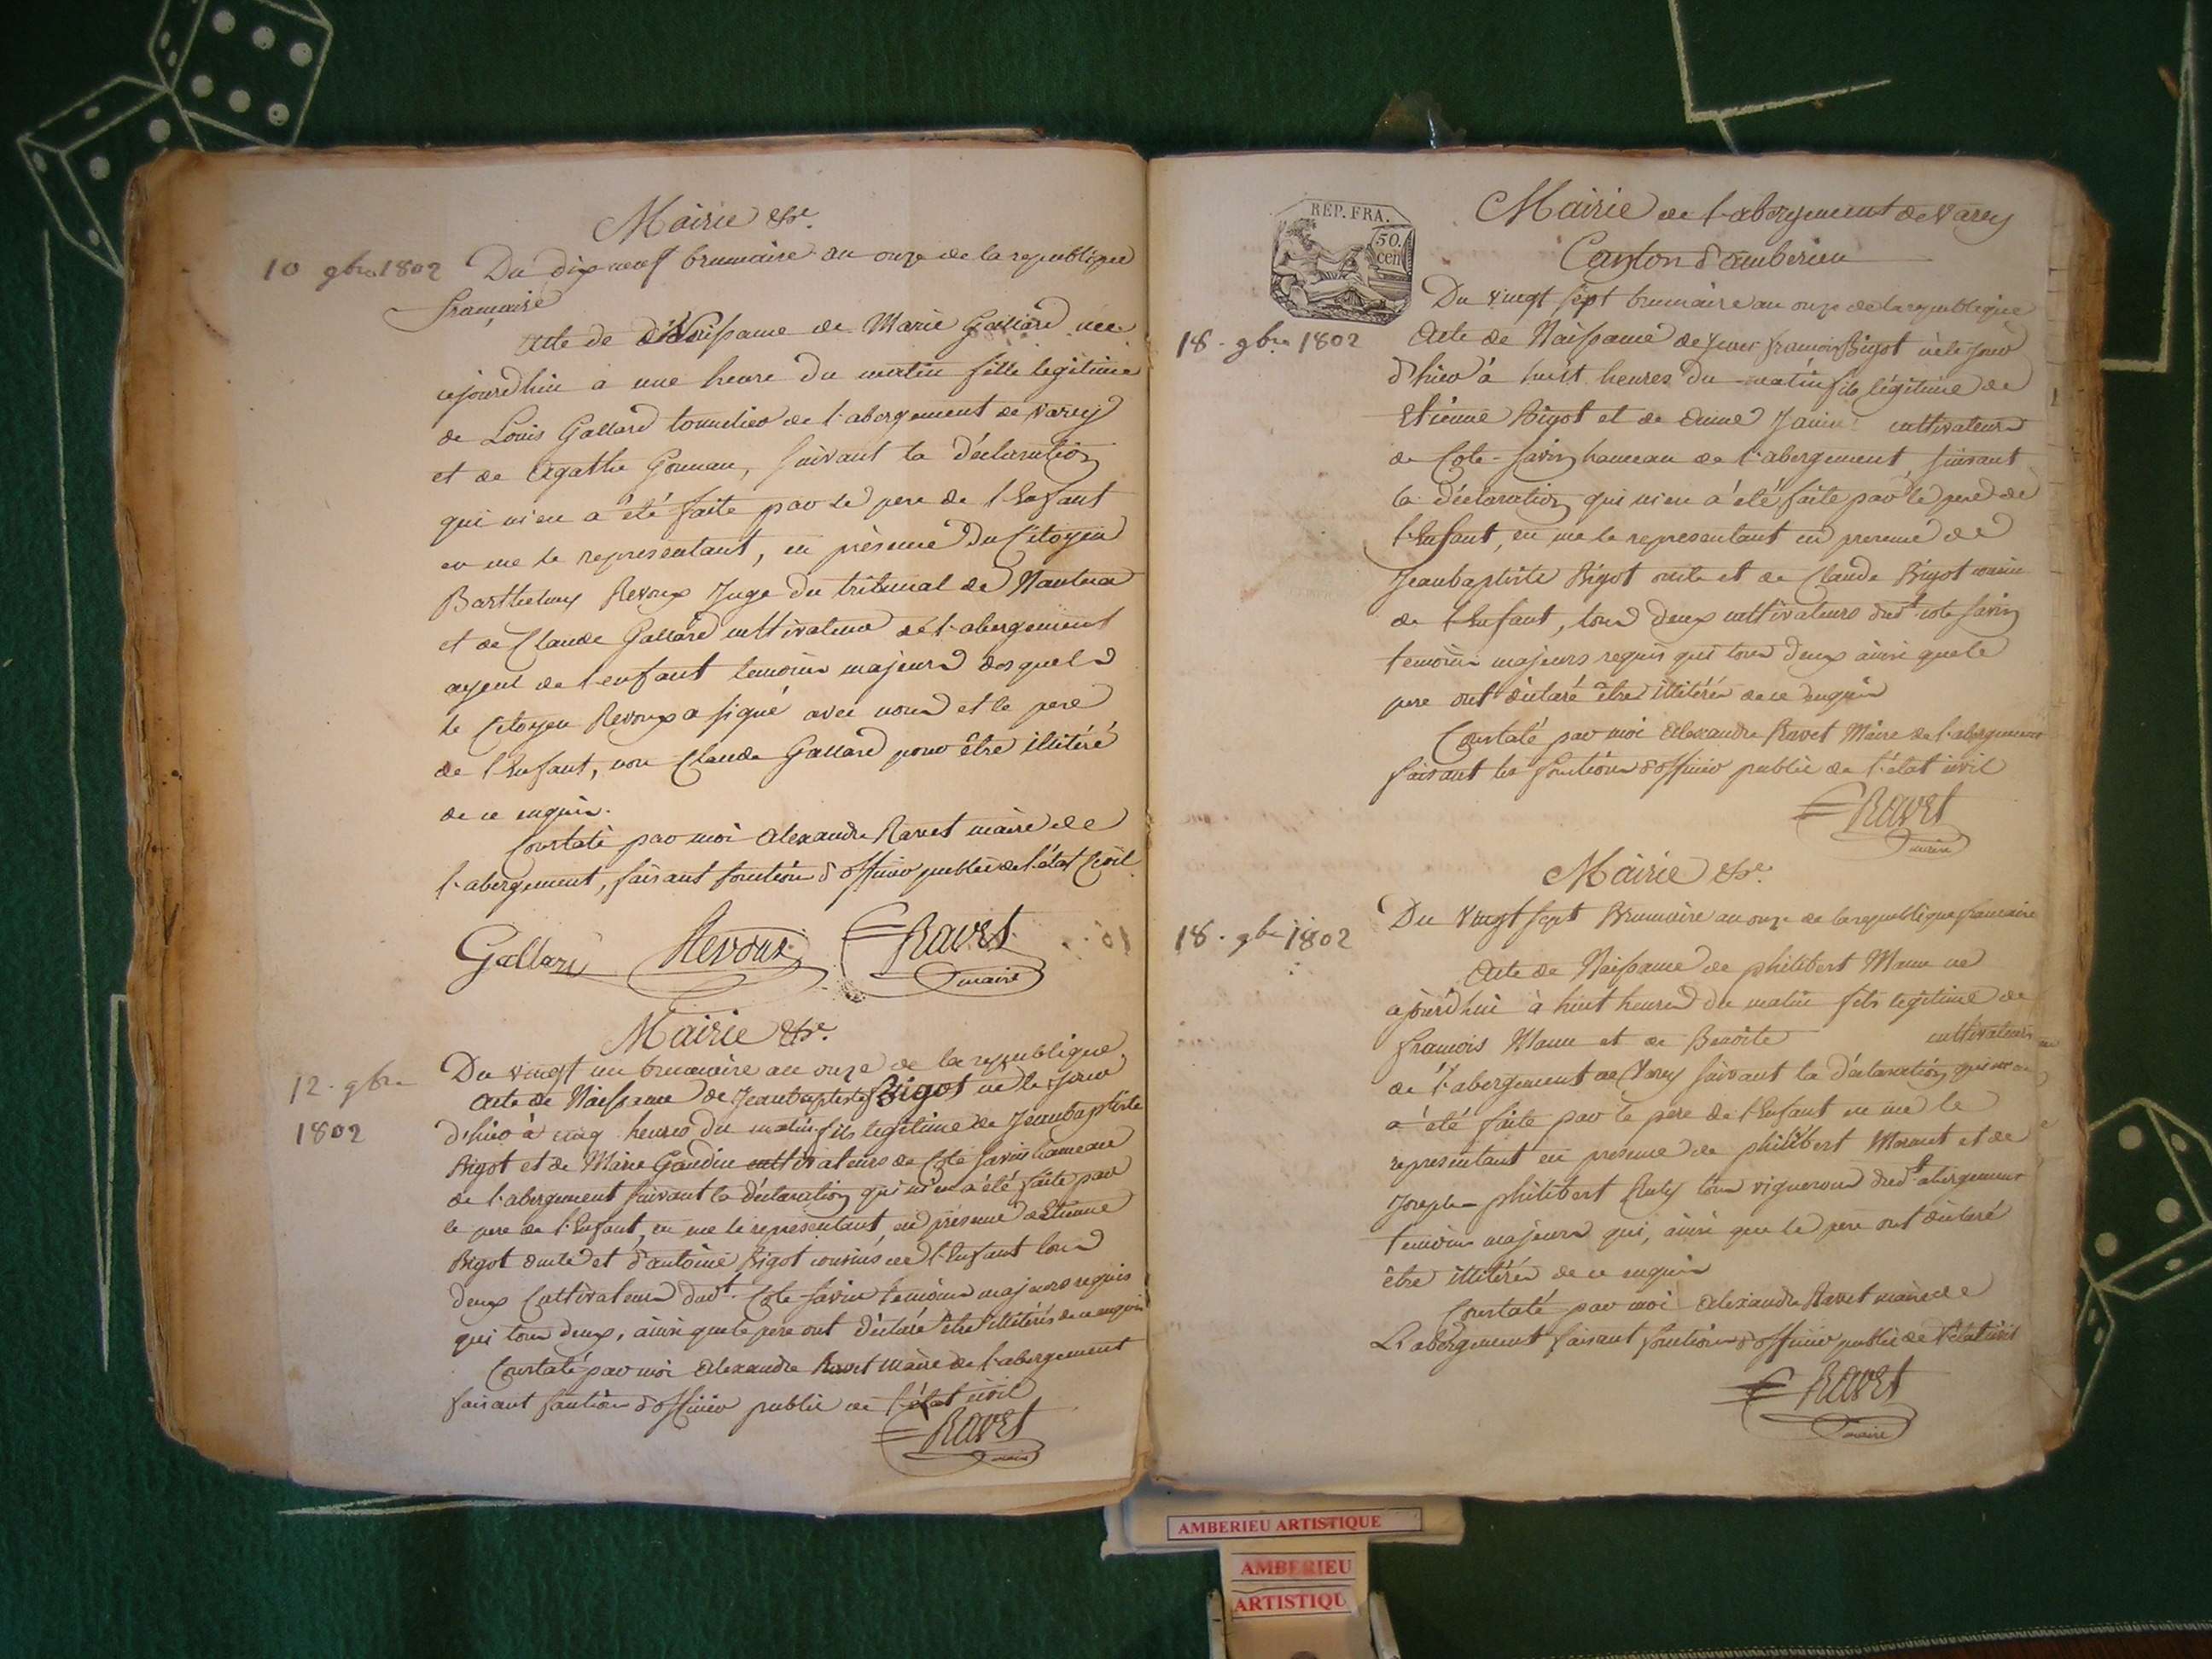 Mairie &re.
10 gbre 1802
Du dix neuf brumaire an onze de la republique
francaise
Acte de Naissance de Marie Gallard née
cejourdhui a une heure du matin fille legitime
de Louis Gallard tonnelier de l'abergement de varey
et de Agathe Gounau, suivant la déclaration
qui m'en a été faite par le pere de l'Enfant
en me le representant, en présence du Citoyen
Barthelemy Revoux Juge du tribunal de Nantua
et de Claude Gallard cultivateur de l'abergement
ayeul de l'enfant temoins majeurs desquels
le Citoyen Revoux a signé avec nous et le pere
de l'Enfant, non Claude Gallard pour être illitéré
de ce enquis.
Constaté par moi Alexandre Ravet maire de
l'abergement, faisant fonction d'officier public de l'état Civil
Gallard Revoux Ravet
maire
Mairie &re.
12. gbre
1802
Du vingt un brumaire an onze de la republique
Acte de Naissance de Jeanbaptiste Bigot né le jour
d'hier à cinq heures du matin fils legitime de Jeanbaptiste
Bigot et de Marie Gaudin cultivateurs de Cote savin hameau
de l'abergement suivant la déclaration qui m'en a été faite par
le pere de l'Enfant, en me le representant, en présence d'Etienne
Bigot oncle et d'antoine Bigot cousins de l'Enfant tous
deux Cultivateurs dudt. Cote-savin temoins majeurs requis
qui tous deux, ainsi que le pere ont déclaré être illitérés de ce enquis
Constaté par moi Alexandre Ravet Maire de l'abergement
faisant fonction d'officier public de l'état civil
Ravet
maire
REP. FRA.
50.
cen
Mairie de l'abergement de Varey
Canton d'amberieu
Du vingt sept brumaire an onze de la republique
18. gbre 1802
Acte de Naissance de francois Bigot né le jour
d'hier à huit heures du matin fils légitime de
Etienne Bigot et de Anne Janin cultivateurs
de Cote-savin hameau de l'abergement, suivant
la déclaration qui m'en a été faite par le pere de
l'Enfant, en me le representant en presence de
Jeanbaptiste Bigot oncle et de Claude Bigot cousin
de l'Enfant, tous deux cultivateurs dudt cote savin
temoins majeurs requis qui tous deux ainsi que le
pere ont déclaré être illitérés de ce enquis
Constaté par moi Alexandre Ravet Maire de l'abergement
faisant les fonctions d'officier public de l'état civil
Ravet
maire
Mairie &re.
18. gbre 1802
Du vingt sept Brumaire an onze de la republique francaise
Acte de Naissance de philibert Manu né
cejourd'hui à huit heures du matin fils legitime de
francois Manu et de Benoite cultivateurs
de l'abergement de Varey suivant la déclaration qui m'en
a été faite par le pere de l'Enfant en me le
representant en presence de philibert et de
Joseph-philibert tous vignerons dudt abergement
temoins majeurs qui, ainsi que le pere ont déclaré
être illitérés de ce enquis
Constaté par moi Alexandre Ravet maire de
L'abergement faisant fonction d'officier public de l'état civil
Ravet
maire
AMBERIEU ARTISTIQUE
AMBERIEU
ARTISTIQU